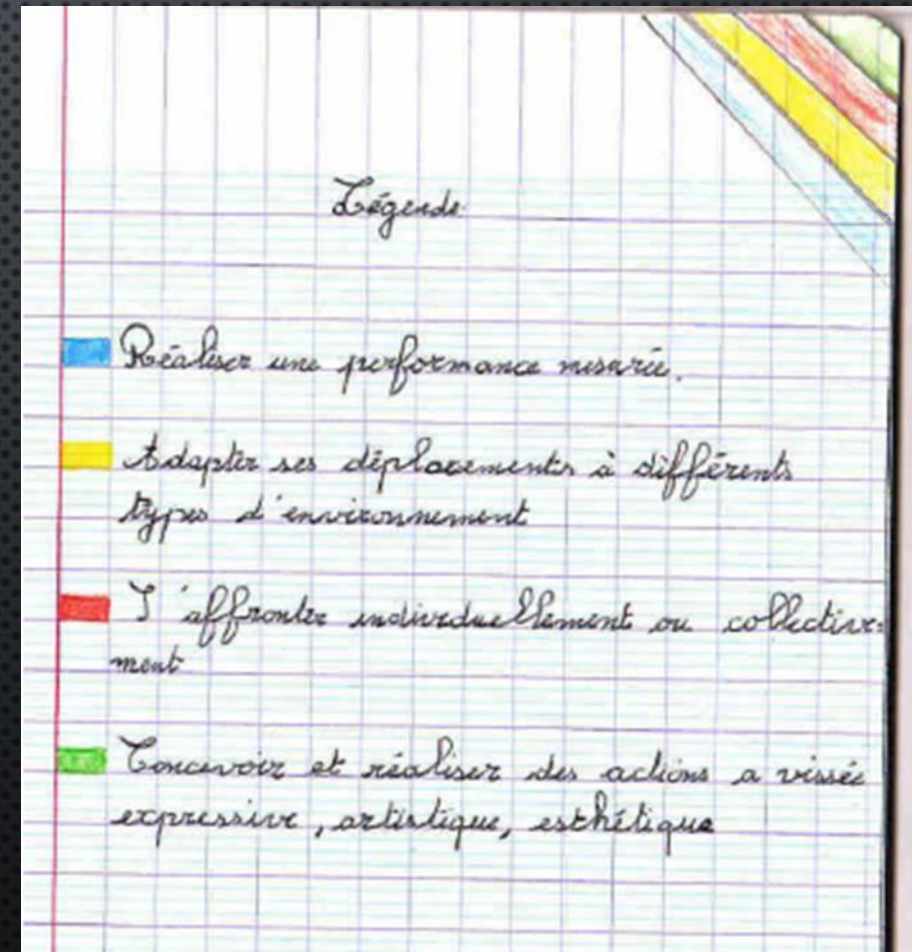 Légende
Réaliser une performance mesurée.
Adapter ses déplacements à différents
types d'environnement
S'affronter individuellement ou collective-
ment
Concevoir et réaliser des actions a vissée
expressive, artistique, esthétique